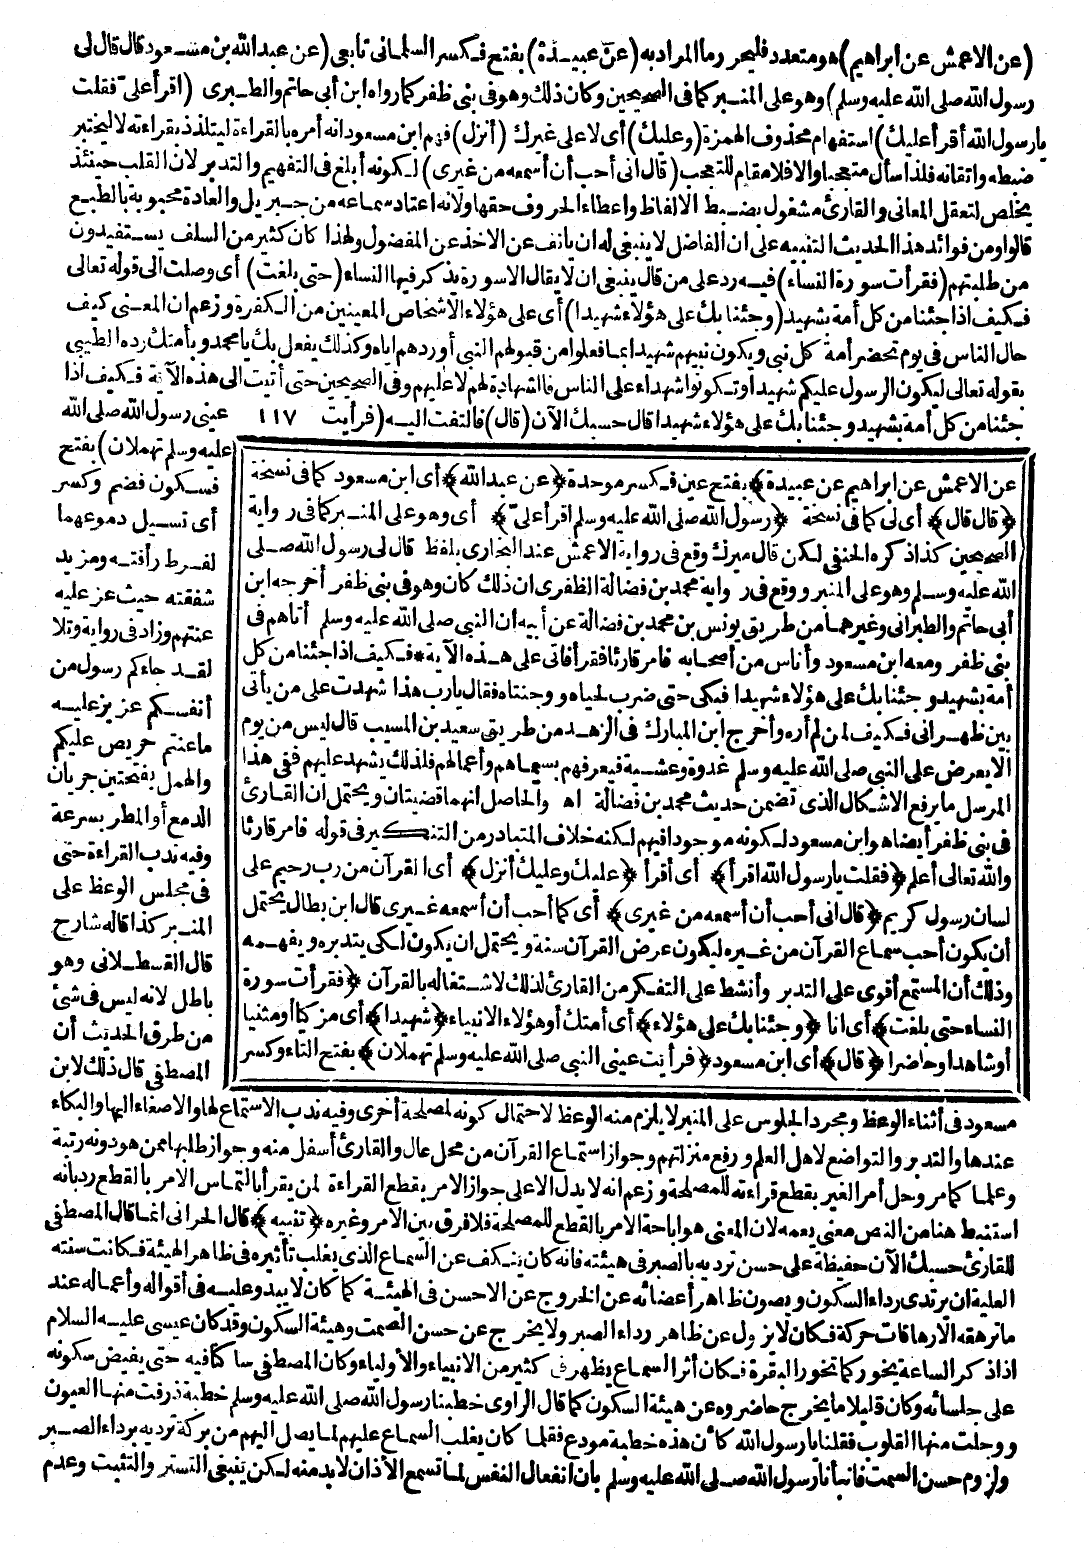 (عن الاعمش عن ابراهيم) هو متعدد فليحرر ما المراد به (عن عبيدة) بفتح فكسر السلماني تابعي (عن عبد الله بن مسعود قال قال لى
رسول الله صلى الله عليه وسلم) وهو على المنبر كما فى الصحيحين وكان ذلك وهو فى بنى ظفر كما رواه ابن أبى حاتم والطبرى (اقرأ علىّ فقلت
يارسول الله أقرأ عليك) استفهام محذوف الهمزة (وعليك) أى لا على غيرك (أنزل) فهم ابن مسعود انه أمره بالقراءة ليتلذذ بقراءته لا ليختبر
ضبطه واتقانه فلذا سأل متعجبا والا فلا مقام للتعجب (قال انى أحب أن أسمعه من غيرى) لكونه أبلغ فى التفهيم والتدبر لان القلب حينئذ
يخلص لتعقل المعانى والقارئ مشغول بضبط الالفاظ واعطاء الحروف حقها ولانه اعتاد سماعه من جبريل والعادة محبوبة بالطبع
قالوا ومن فوائد هذا الحديث التنبيه على ان الفاضل لا ينبغى له ان يانف عن الاخذ عن المفضول ولهذا كان كثير من السلف يستفيدون
من طلبتهم (فقرأت سورة النساء) فيه رد على من قال ينبغى ان لا يقال الا سورة يذكر فيها النساء (حتى بلغت) أى وصلت الى قوله تعالى
فكيف اذا جئنا من كل أمة بشهيد (وجئنا بك على هؤلاء شهيدا) أى على هؤلاء الاشخاص المعينين من الكفرة وزعم ان المعنى كيف
حال الناس فى يوم تحضر أمة كل نبى ويكون نبيهم شهيدا بما فعلوا من قبولهم النبى أو ردهم اياه وكذلك يفعل بك يا محمد وبأمتك رده الطيبى
بقوله تعالى ليكون الرسول عليكم شهيدا وتكونوا شهداء على الناس فالشهادة لهم لا عليهم وفى الصحيحين حتى أتيت الى هذه الآية فكيف اذا
جئنا من كل أمة بشهيد وجئنا بك على هؤلاء شهيدا قال حسبك الآن (قال) فالتفت اليه (فرأيت ١١٧ عينى رسول الله صلى الله
عليه وسلم تهملان) بفتح
فسكون فضم وكسر
أى تسيل دموعهما
لفرط رأفته ومزيد
شفقته حيث عز عليه
عنتهم وزاد فى رواية وتلا
لقد جاءكم رسول من
أنفسكم عزيز عليه
ما عنتم حريص عليكم
والهمل بفتحتين جريان
الدمع أو المطر بسرعة
وفيه ندب القراءة حتى
فى مجلس الوعظ على
المنبر كذا قاله شارح
قال القسطلانى وهو
باطل لانه ليس فى شئ
من طرق الحديث أن
المصطفى قال ذلك لابن
عن الاعمش عن ابراهيم عن عبيدة﴾ بفتح عين فكسر موحدة ﴿عن عبد الله﴾ أى ابن مسعود كما فى نسخة
﴿قال قال﴾ أى لى كما فى نسخة ﴿رسول الله صلى الله عليه وسلم اقرأ علىّ﴾ أى وهو على المنبر كما فى رواية
الصحيحين كذا ذكره الحنفى لكن قال ميرك وقع فى رواية الاعمش عند البخارى بلفظ قال لى رسول الله صلى
الله عليه وسلم وهو على المنبر ووقع فى رواية محمد بن فضالة الظفرى ان ذلك كان وهو فى بنى ظفر أخرجه ابن
أبى حاتم والطبرانى وغيرهما من طريق يونس بن محمد بن فضالة عن أبيه أن النبى صلى الله عليه وسلم أتاهم فى
بنى ظفر ومعه ابن مسعود وأناس من أصحابه فامر قارئا فقرأ فاتى على هذه الآية * فكيف اذا جئنا من كل
أمة بشهيد وجئنا بك على هؤلاء شهيدا فبكى حتى ضرب لحياه ووجنتاه فقال يارب هذا شهدت على من يأتى
بين ظهرانى فكيف لمن لم أره وأخرج ابن المبارك فى الزهد من طريق سعيد بن المسيب قال ليس من يوم
الا يعرض على النبى صلى الله عليه وسلم غدوة وعشية فيعرفهم بسيماهم وأعمالهم فلذلك يشهد عليهم ففى هذا
المرسل ما يرفع الاشكال الذى تضمن حديث محمد بن فضالة اه والحاصل انهما قضيتان ويحتمل ان القارئ
فى بنى ظفر أيضا هو ابن مسعود لكونه موجودا فيهم لكنه خلاف المتبادر من التنكير فى قوله فامر قارئا
والله تعالى أعلم ﴿فقلت يارسول الله اقرأ﴾ أى أقرأ ﴿عليك وعليك أنزل﴾ أى القرآن من رب رحيم على
لسان رسول كريم ﴿قال انى أحب أن أسمعه من غيرى﴾ أى كما أحب أن أسمعه غيرى قال ابن بطال يحتمل
أن يكون أحب سماع القرآن من غيره ليكون عرض القرآن سنة ويحتمل ان يكون لكى يتدبره ويفهمه
وذلك أن المستمع أقوى على التدبر وأنشط على التفكر من القارئ لذلك لاشتغاله بالقرآن ﴿فقرأت سورة
النساء حتى بلغت﴾ أى انا ﴿وجئنا بك على هؤلاء﴾ أى أمتك أو هؤلاء الانبياء ﴿شهيدا﴾ أى مزكيا أو مثنيا
أو شاهدا وحاضرا ﴿قال﴾ أى ابن مسعود ﴿فرأيت عينى النبى صلى الله عليه وسلم تهملان﴾ بفتح التاء وكسر
مسعود فى أثناء الوعظ ومجرد الجلوس على المنبر لا يلزم منه الوعظ لاحتمال كونه لمصلحة أخرى وفيه ندب الاستماع لها والاصغاء اليها والبكاء
عندها والتدبر والتواضع لاهل العلم ورفع منزلتهم وجواز استماع القرآن من محل عال والقارئ أسفل منه وجواز طلبها ممن هو دونه رتبة
وعلما كما مر وحل أمر الغير بقطع قراءته للمصلحة وزعم انه لا يدل الا على جواز الامر بقطع القراءة لمن يقرأ بالتماس الامر بالقطع رد بانه
استنبط هنا من النص معنى يعمه لان المعنى هو اباحة الامر بالقطع للمصلحة فلا فرق بين الآمر وغيره ﴿تنبيه﴾ قال الحرانى انما قال المصطفى
للقارئ حسبك الآن حفيظة على حسن ترديه بالصبر فى هيئته فانه كان يتكف عن السماع الذى يغلب تأثيره فى ظاهر الهيئة فكانت سنته
العلية ان يرتدى رداء السكون ويصون ظاهر أعضائه عن الخروج عن الاحسن فى الهيئة كما كان لا يبدو عليه فى أقواله وأعماله عند
ما ترهقه الارهاقات حركة فكان لا يزول عن ظاهر رداء الصبر ولا يخرج عن حسن الصمت وهيئة السكون وقد كان عيسى عليه السلام
اذا ذكر الساعة يخور كما تخور البقرة فكان أثر السماع يظهر فى كثير من الانبياء والأولياء وكان المصطفى ساكنا فيه حتى يفيض سكونه
على جلسائه وكان قليلا ما يخرج حاضروه عن هيئة السكون كما قال الراوى خطبنا رسول الله صلى الله عليه وسلم خطبة ذرفت منها العيون
ووجلت منها القلوب فقلنا يارسول الله كأن هذه خطبة مودع فقلما كان يغلب السماع عليهم لما يصل اليهم من بركة ترديه برداء الصبر
ولزوم حسن السمت فانبأنا رسول الله صلى الله عليه وسلم بان انفعال النفس لما تسمع الأذان لا بد منه لكن ينبغى التستر والتثبت وعدم